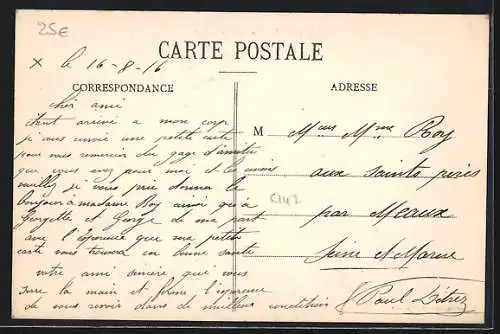 25€
CARTE POSTALE
X le 16-8-16
CORRESPONDANCE
ADRESSE
cher ami
étant arrivé a mon corp
je vous envoi une petite carte
pour vous remercier du gage d'amitié
que vous avez pour moi et
veuillez je vous prie donner le
bonjour à madame Roy ainsi qu'à
Georgette et George de ma part
avec l'espérance que ma petite
carte vous trouvera en bonne santé
votre ami sincère qui vous
serre la main et forme l'espérance
de vous revoir dans de meilleures conditions
M
Mme Roy
aux Saints pères
par Meaux
Seine et Marne
Paul